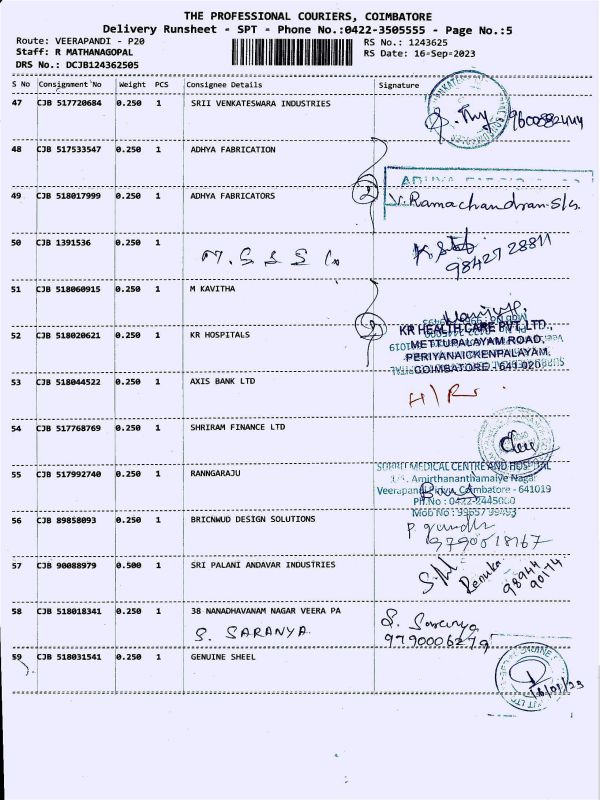 THE PROFESSIONAL COURIERS, COIMBATORE
Delivery Runsheet - SPT - Phone No.:0422-3505555 - Page No.:5
Route: VEERAPANDI - P20
RS No.: 1243625
Staff: R MATHANAGOPAL
RS Date: 16-Sep-2023
DRS No.: DCJB124362505
S No Consignment No Weight PCS Consignee Details Signature
47 CJB 517720684 0.250 1 SRII VENKATESWARA INDUSTRIES
48 CJB 517533547 0.250 1 ADHYA FABRICATION
49 CJB 518017999 0.250 1 ADHYA FABRICATORS
V. Ramachandran
50 CJB 1391536 0.250 1
9842728811
51 CJB 518060915 0.250 1 M KAVITHA
52 CJB 518020621 0.250 1 KR HOSPITALS
KR HEALTH CARE PVT. LTD.,
METTUPALAYAM ROAD,
PERIYANAICKENPALAYAM,
COIMBATORE - 641 020
53 CJB 518044522 0.250 1 AXIS BANK LTD
54 CJB 517768769 0.250 1 SHRIRAM FINANCE LTD
55 CJB 517992740 0.250 1 RANNGARAJU
MEDICAL CENTRE AND HOSPITAL
Amirthananthamaiye Nagar
Veerapandi Pirivu, Coimbatore - 641019
Ph.No : 0422-2445000
Mob No : 99657 99493
56 CJB 89858093 0.250 1 BRICNWUD DESIGN SOLUTIONS
57 CJB 90088979 0.500 1 SRI PALANI ANDAVAR INDUSTRIES
Renuka
98944
90174
58 CJB 518018341 0.250 1 38 NANADHAVANAM NAGAR VEERA PA
S. SARANYA
S. Saranya
9790006279
59 CJB 518031541 0.250 1 GENUINE SHEEL